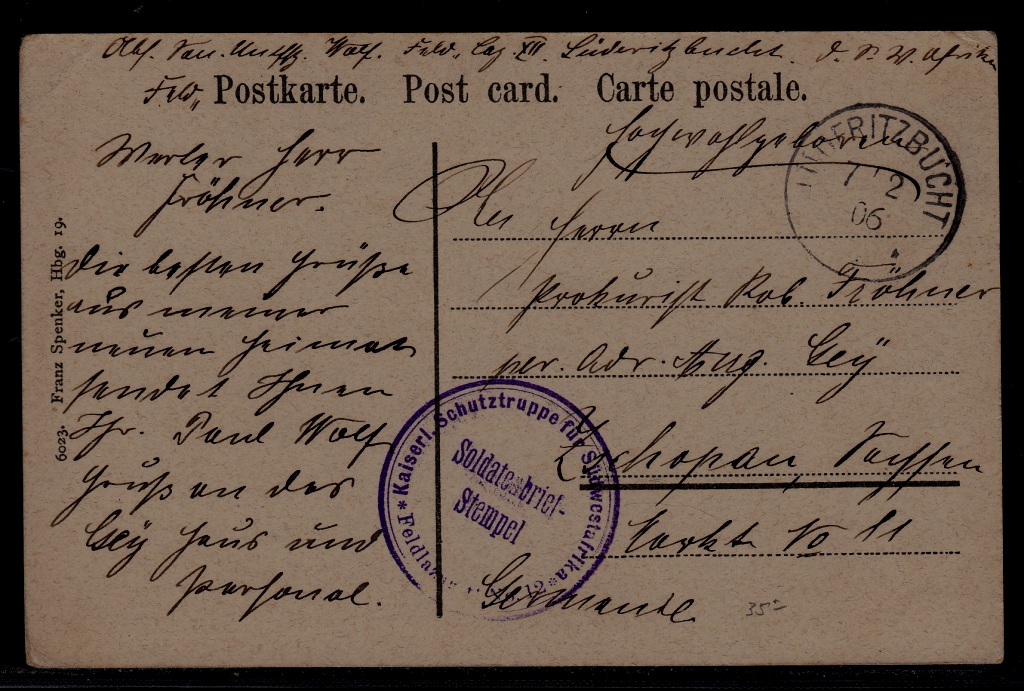 Abs. San. Untffz. Wolf. Feld. Laz XII. Lüderitzbucht. d. S. W. Afrika
Feld Postkarte. Post card. Carte postale.
Werter Herr
Fröhner.
Die besten Grüße
aus meiner
neuen Heimat
sendet Ihnen
Ihr. Paul Wolf
Gruß an das
Gey Haus und
Personal.
6023. Franz Spenker, Hbg. 19.
Hochwohlgeboren
Herrn
Prokurist Rob. Fröhner
per. Adr. Aug. Gey
Zschopau, Sachsen
Markt No 11
Germania
LÜDERITZBUCHT
7 2
06
* Kaiserl. Schutztruppe für Südwestafrika *
Soldatenbrief-
Stempel
12
35-